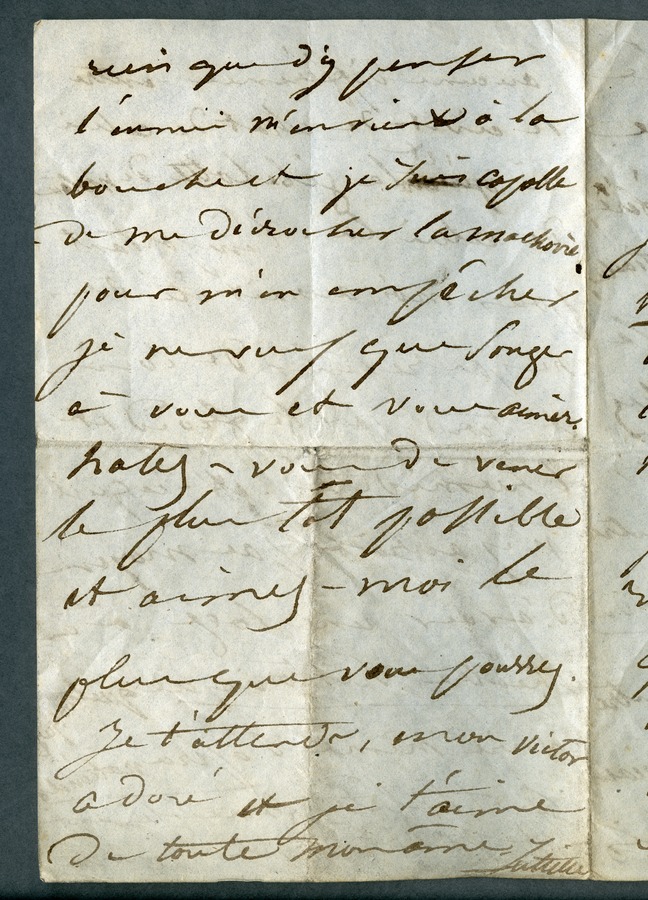 rien que d'y penser
l'ennui m'en vient à la
bouche et je suis capable
de me décrocher la machoire
pour m'en empêcher
je ne veux que songer
à vous et vous aimer.
hatez-vous de venir
le plus tôt possible
et aimez-moi le
plus que vous pourrez.
Je t'attends, mon Victor
adoré et je t'aime
de toute mon âme
Juliette